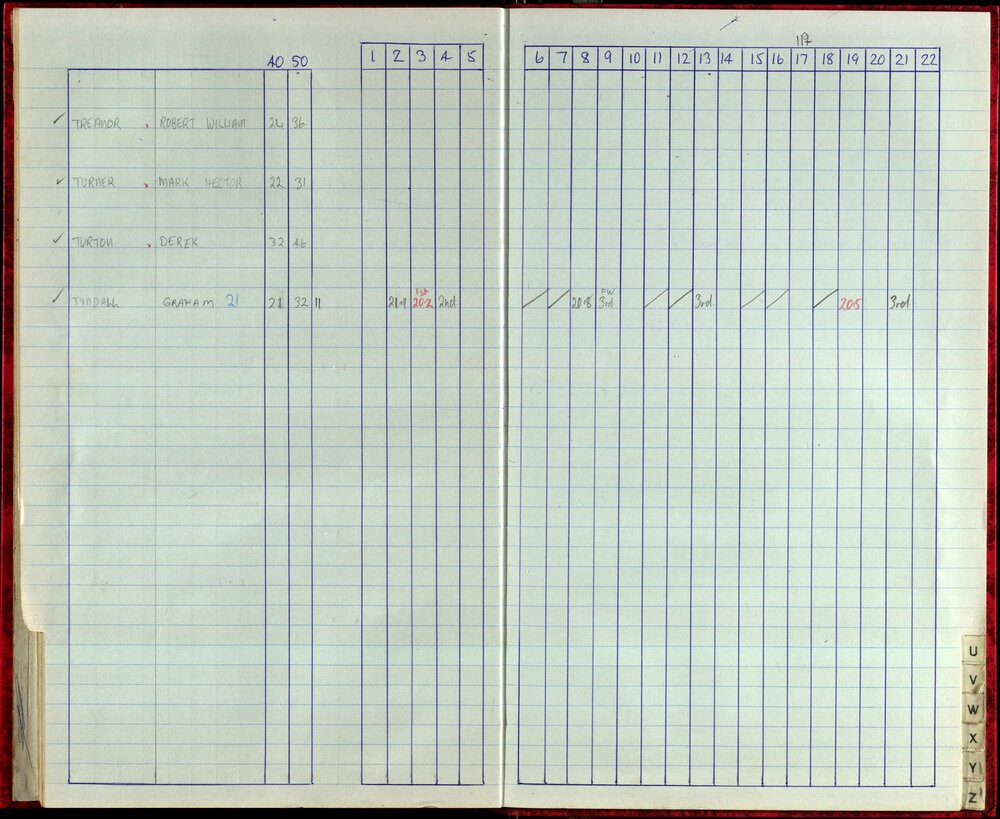 117
40 50 1 2 3 4 5 6 7 8 9 10 11 12 13 14 15 16 17 18 19 20 21 22
✓ TREANOR x ROBERT WILLIAM 24 36
✓ TURNER x MARK HECTOR 22 31
✓ TURTON x DEREK 32 46
1st FW
✓ TYNDALL GRAHAM 21 21 32 11 21.11 20.2 2nd / / 20.8 3rd / / 3rd. / / / 20.5 3rd
U
V
W
X
Y
Z